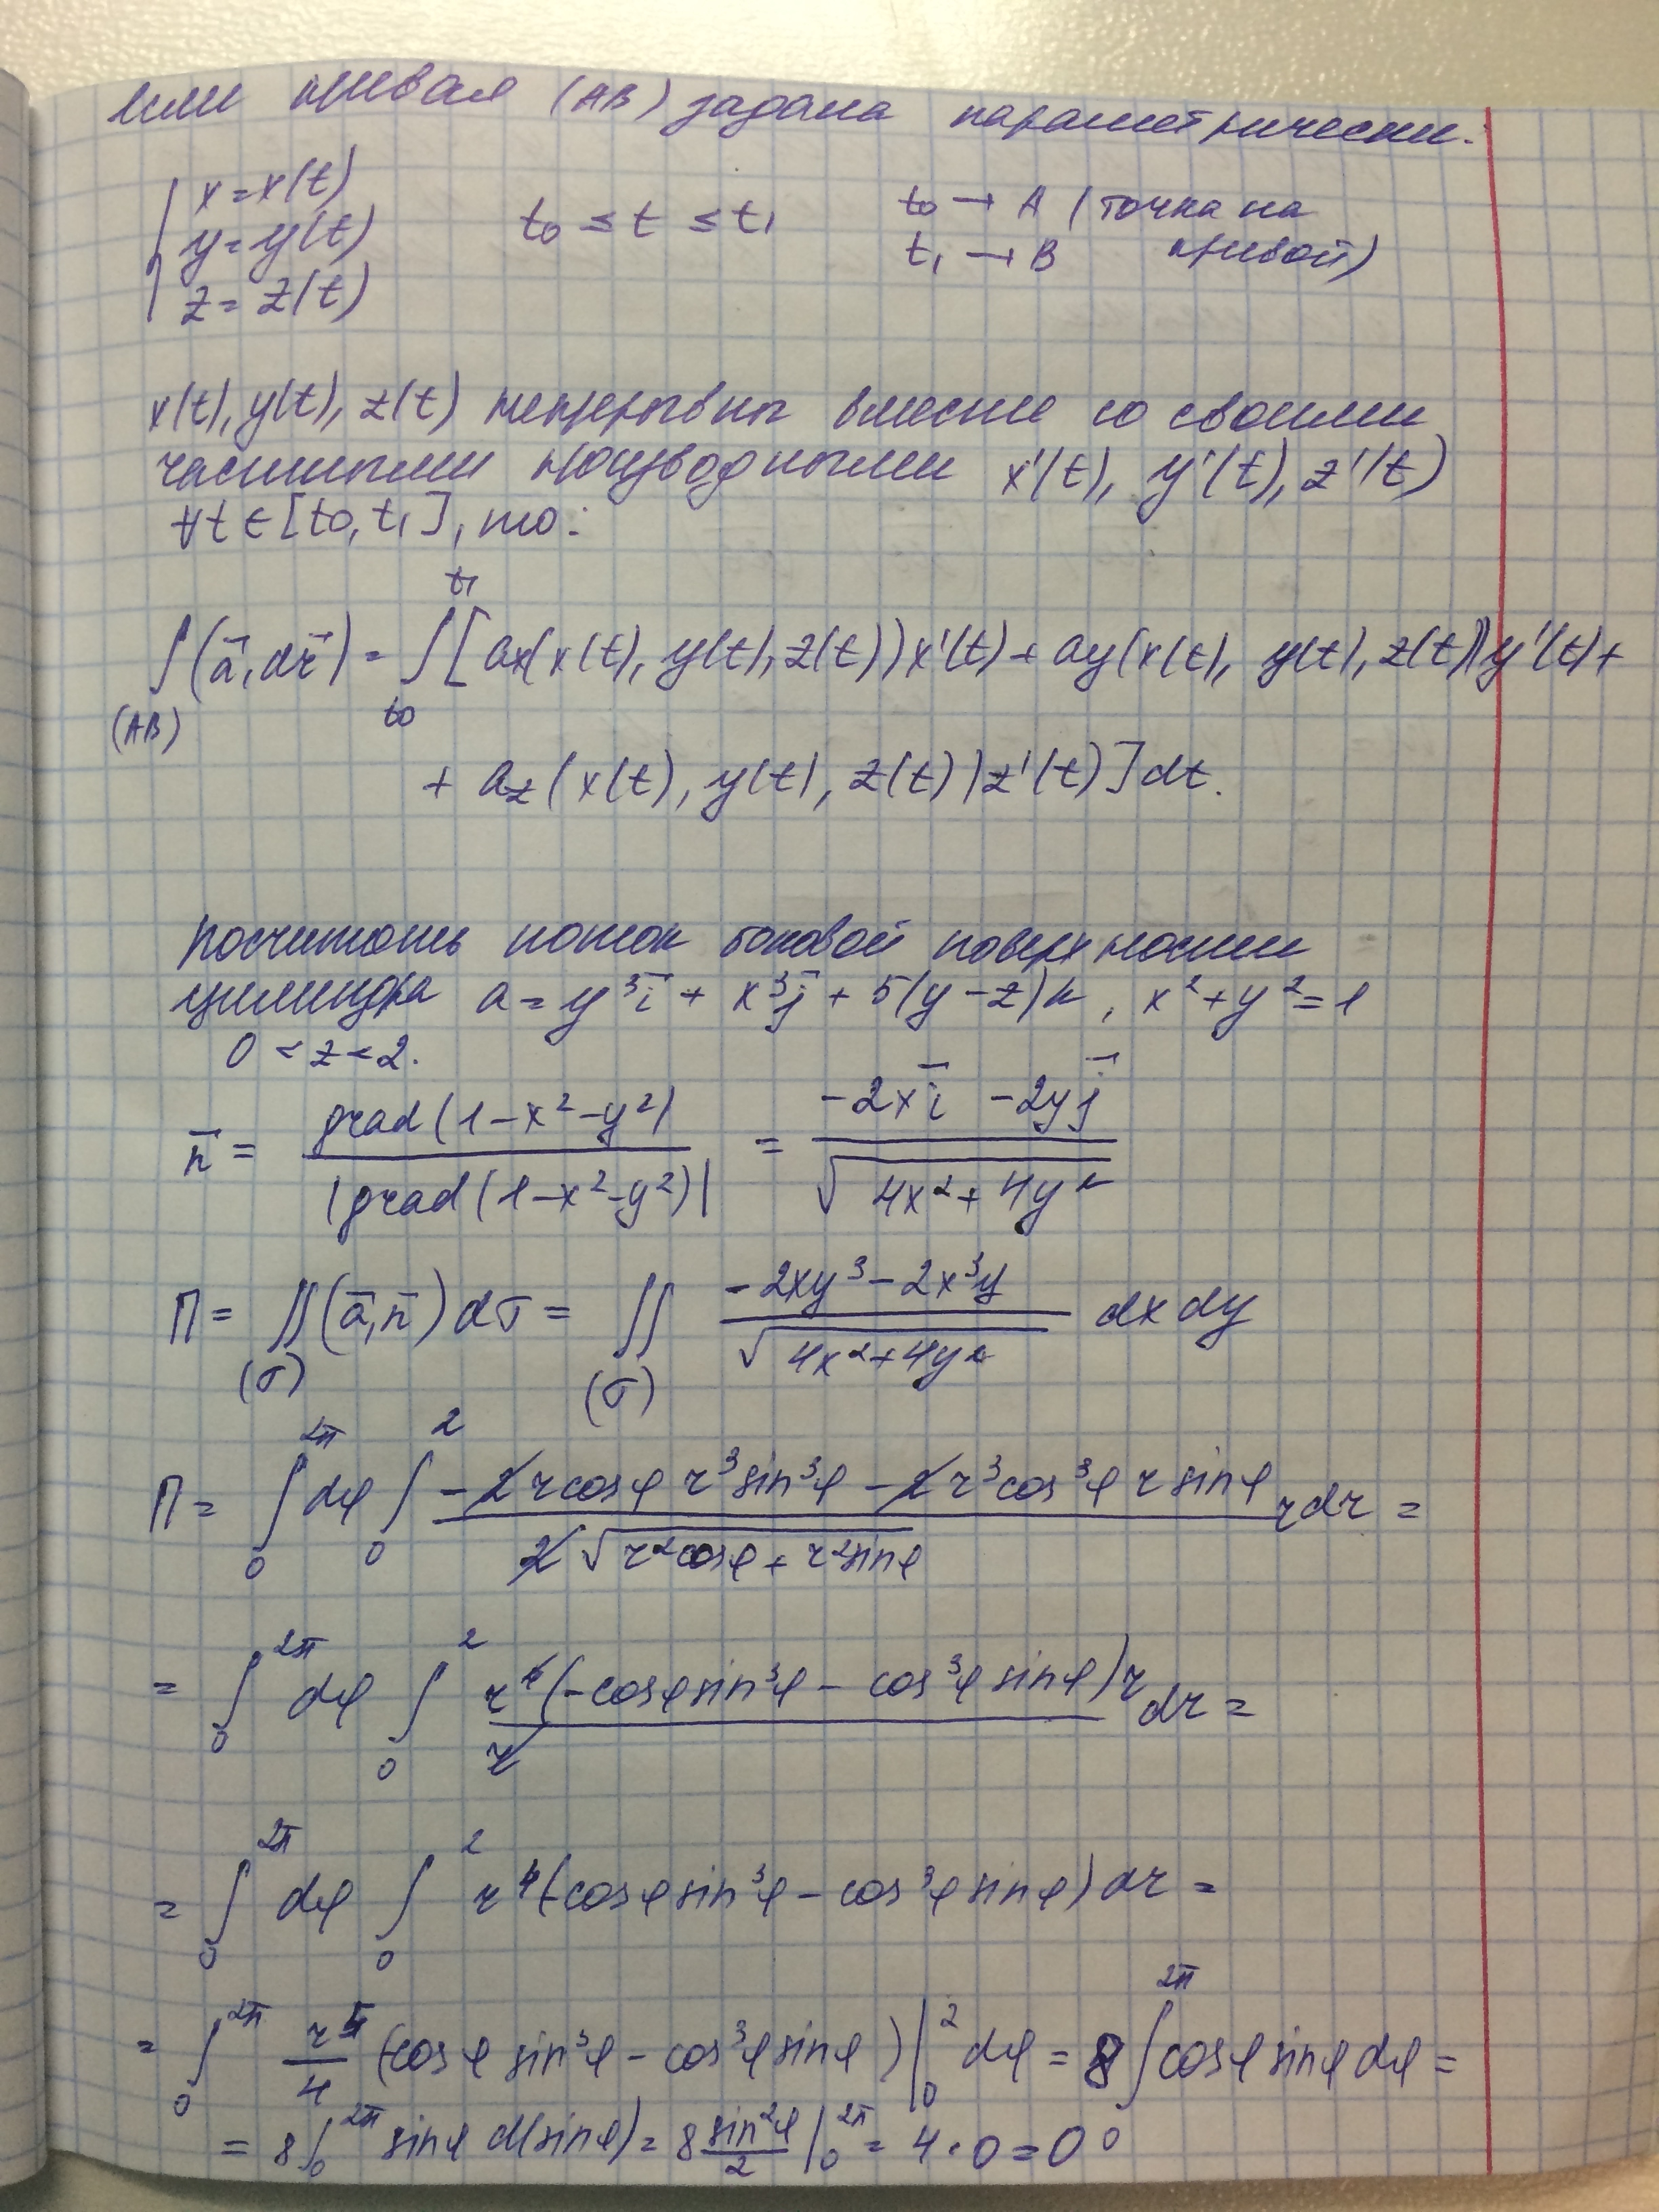 если кривая (AB) задана параметрически.
{ x = x(t)
y = y(t)
z = z(t)
t₀ ≤ t ≤ t₁
t₀ → A (точка на
t₁ → B кривой)
x(t), y(t), z(t) непрерывны вместе со своими
частными производными x'(t), y'(t), z'(t)
∀t ∈ [t₀, t₁], то:
∫_(AB) (a̅, dr̅) = ∫_{t₀}^{t₁} [ax(x(t), y(t), z(t))x'(t) + ay(x(t), y(t), z(t))y'(t) +
+ az(x(t), y(t), z(t))z'(t)]dt.
Посчитать поток боковой поверхности
цилиндра a = y³i̅ + x³j̅ + 5(y - z)k, x² + y² = 1
0 < z < 2.
n̅ = grad(1-x²-y²) / |grad(1-x²-y²)| = (-2xi̅ - 2yj̅) / √(4x² + 4y²)
П = ∬_(σ) (a̅, n̅) dσ = ∬_(σ) (-2xy³ - 2x³y) / √(4x² + 4y²) dx dy
П = ∫₀^{2π} dφ ∫₀² (-2r cosφ r³ sin³φ - 2r³ cos³φ r sinφ) / (2√(r² cosφ + r² sinφ)) r dr =
= ∫₀^{2π} dφ ∫₀² r⁴(-cosφ sin³φ - cos³φ sinφ) r / r dr =
= ∫₀^{2π} dφ ∫₀² r⁴(-cosφ sin³φ - cos³φ sinφ) dr =
= ∫₀^{2π} r⁵/4 (-cosφ sin³φ - cos³φ sinφ) |₀² dφ = 8 ∫^{2π} cosφ sinφ dφ =
= 8 ∫₀^{2π} sinφ d(sinφ) = 8 sin²φ/2 |₀^{2π} = 4·0 = 0